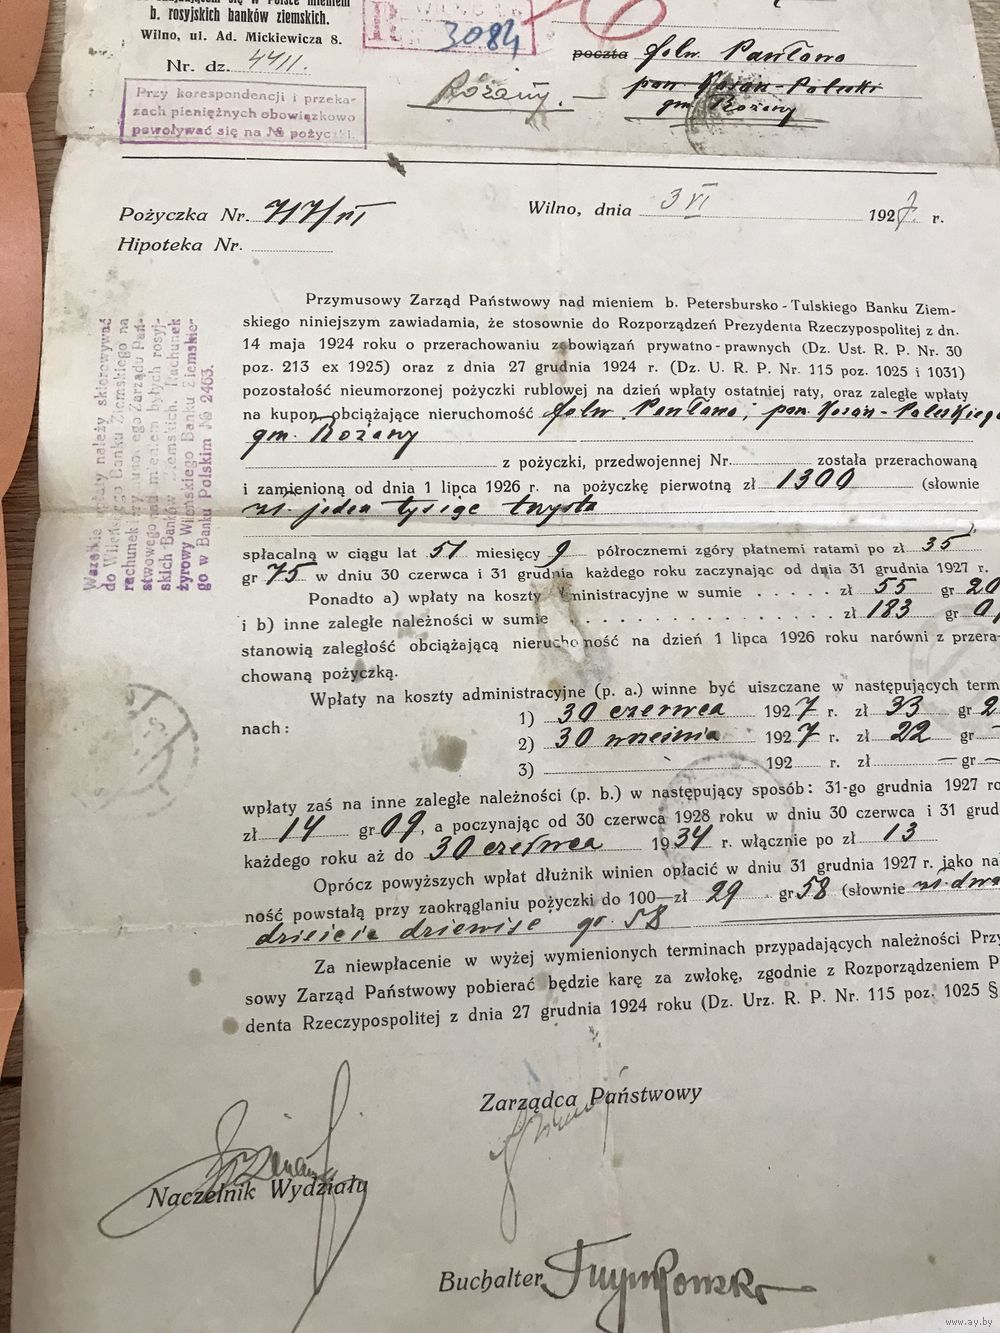 b. rosyjskich banków ziemskich.
Wilno, ul. Ad. Mickiewicza 8.
Nr. dz. 4411.
R
3084
poczta folw Pawłowo
pow Kosów-Poleski
gm Różany
Różany.
Przy korespondencji i przeka-
zach pieniężnych obowiązkowo
powoływać się na № pożyczki.
Pożyczka Nr. 717/VI
Wilno, dnia 3 VI 1927 r.
Hipoteka Nr.
Wszelkie wpłaty należy skierowywać
do Wileńskiego Banku Ziemskiego na
rachunek Przymusowego Zarządu Pań-
stwowego nad mieniem byłych rosyj-
skich Banków Ziemskich. Rachunek
żyrowy Wileńskiego Banku Ziemskie-
go w Banku Polskim № 2463.
Przymusowy Zarząd Państwowy nad mieniem b. Petersbursko-Tulskiego Banku Ziem-
skiego niniejszym zawiadamia, że stosownie do Rozporządzeń Prezydenta Rzeczypospolitej z dn.
14 maja 1924 roku o przerachowaniu zobowiązań prywatno-prawnych (Dz. Ust. R. P. Nr. 30
poz. 213 ex 1925) oraz z dnia 27 grudnia 1924 r. (Dz. U. R. P. Nr. 115 poz. 1025 i 1031)
pozostałość nieumorzonej pożyczki rublowej na dzień wpłaty ostatniej raty, oraz zaległe wpłaty
na kupon, obciążające nieruchomość folw Pawłowo, pow. Kosów-Poleskiego
gm. Różany
z pożyczki, przedwojennej Nr. została przerachowaną
i zamienioną od dnia 1 lipca 1926 r. na pożyczkę pierwotną zł 1300 (słownie
zł. jeden tysiąc trzysta
)
spłacalną w ciągu lat 51 miesięcy 9 półrocznemi zgóry płatnemi ratami po zł 35
gr 75 w dniu 30 czerwca i 31 grudnia każdego roku zaczynając od dnia 31 grudnia 1927 r.
Ponadto a) wpłaty na koszty administracyjne w sumie . . . . . zł 55 gr 20
i b) inne zaległe należności w sumie . . . . . . . . . . . . . zł 183 gr
stanowią zaległość obciążającą nieruchomość na dzień 1 lipca 1926 roku narówni z przera-
chowaną pożyczką.
Wpłaty na koszty administracyjne (p. a.) winne być uiszczane w następujących term
nach:
1) 30 czerwca 1927 r. zł 33 gr 2
2) 30 września 1927 r. zł 22 gr —
3) 192 r. zł — gr —
wpłaty zaś na inne zaległe należności (p. b.) w następujący sposób: 31-go grudnia 1927 ro
zł 14 gr 09, a poczynając od 30 czerwca 1928 roku w dniu 30 czerwca i 31 grud
każdego roku aż do 30 czerwca 1934 r. włącznie po zł 13
Oprócz powyższych wpłat dłużnik winien opłacić w dniu 31 grudnia 1927 r. jako nal
ność powstałą przy zaokrąglaniu pożyczki do 100—zł 29 gr 58 (słownie zł. dwa
dzieścia dziewięć gr. 58
Za niewpłacenie w wyżej wymienionych terminach przypadających należności Przy
sowy Zarząd Państwowy pobierać będzie karę za zwłokę, zgodnie z Rozporządzeniem P
denta Rzeczypospolitej z dnia 27 grudnia 1924 roku (Dz. Urz. R. P. Nr. 115 poz. 1025 §
Zarządca Państwowy
Naczelnik Wydziału
Buchalter
www.ay.by